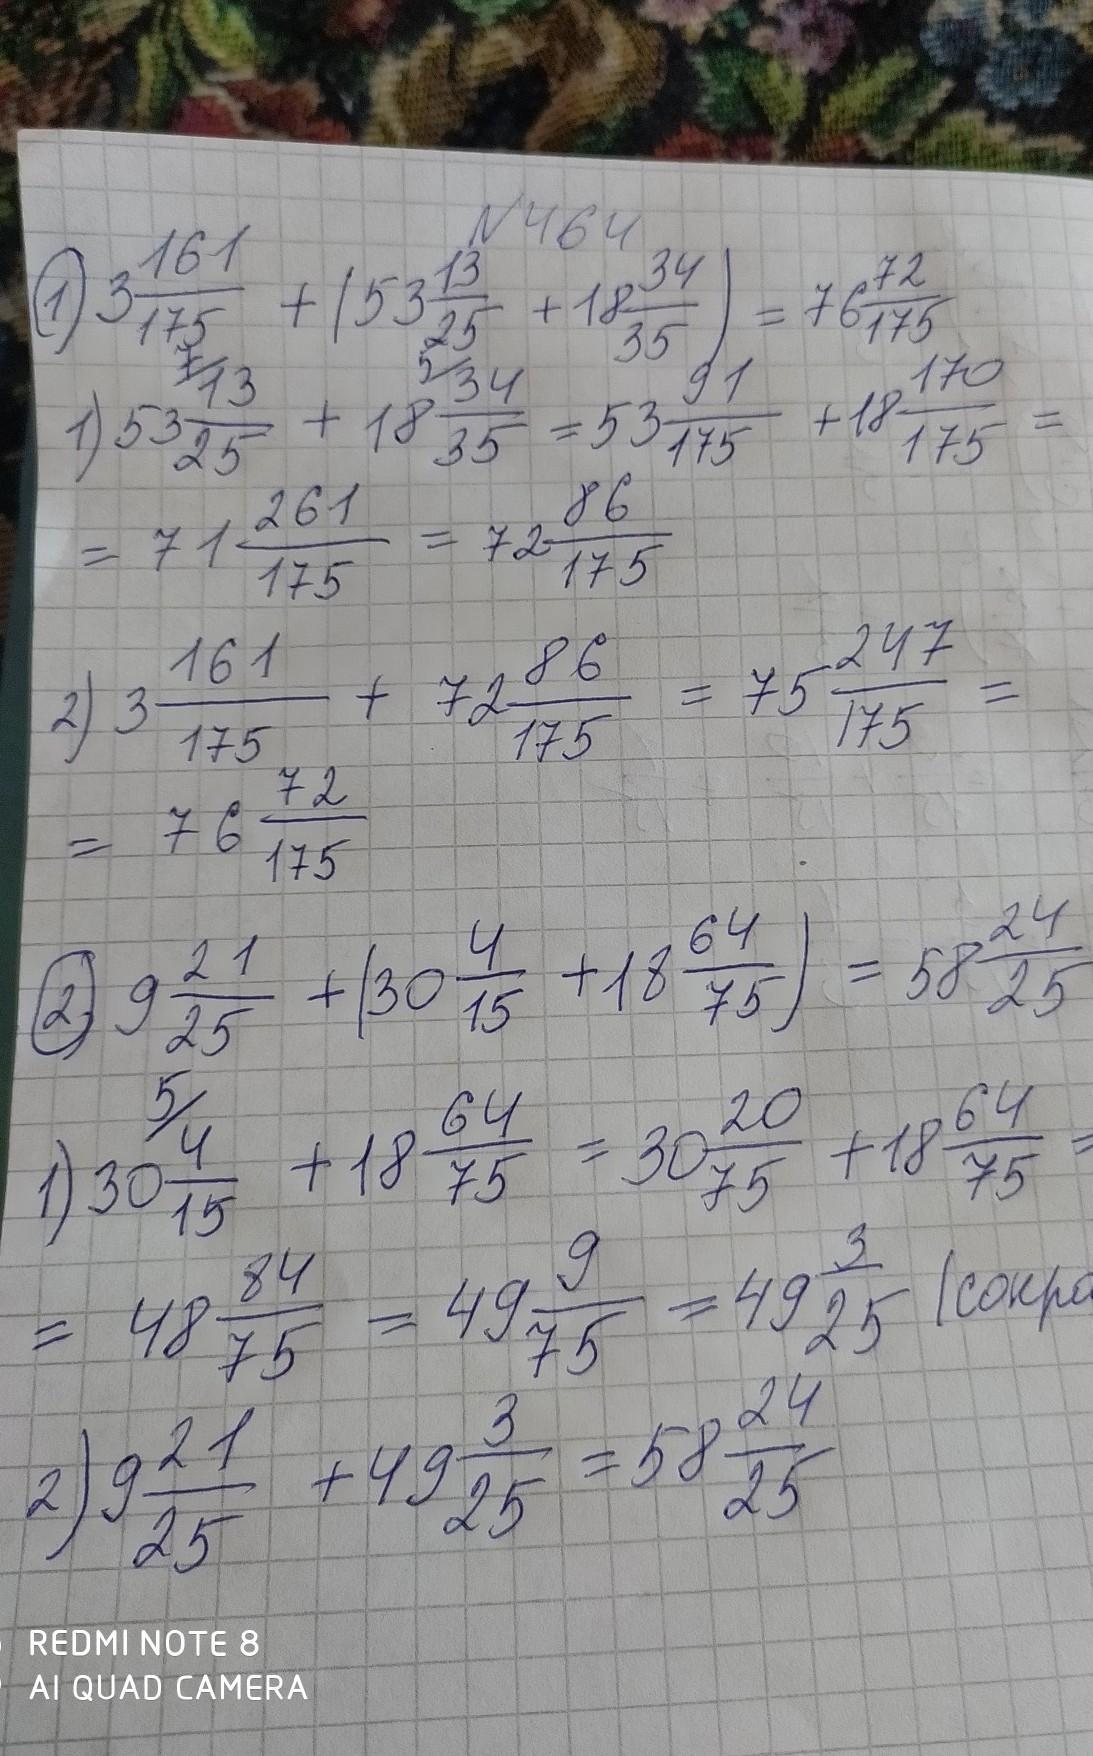 N464
1) 3 161/175 + (53 13/25 + 18 34/35) = 76 72/175
1) 53 7/13/25 + 18 5/34/35 = 53 91/175 + 18 170/175 =
= 71 261/175 = 72 86/175
2) 3 161/175 + 72 86/175 = 75 247/175 =
= 76 72/175
2) 9 21/25 + (30 4/15 + 18 64/75) = 58 24/25
1) 30 5/4/15 + 18 64/75 = 30 20/75 + 18 64/75 =
= 48 84/75 = 49 9/75 = 49 3/25 (сокра
2) 9 21/25 + 49 3/25 = 58 24/25
REDMI NOTE 8
AI QUAD CAMERA